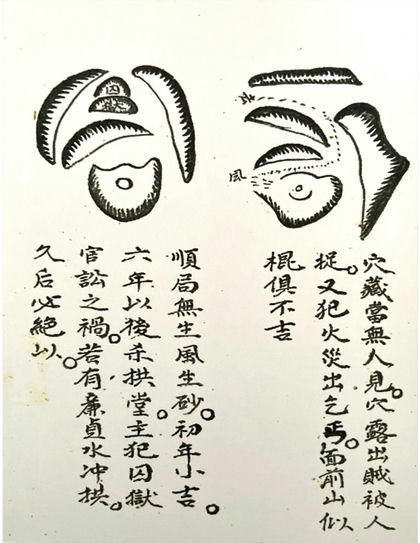 風
穴藏當無人見。穴露出賊被人
捉。又犯火災出乞丐。面前山似
棍俱不吉
囚
順局無生風生砂。初年小吉。
六年以後杀拱堂主犯囚獄
官訟之禍。若有廉貞水冲拱。
久后必絶以。